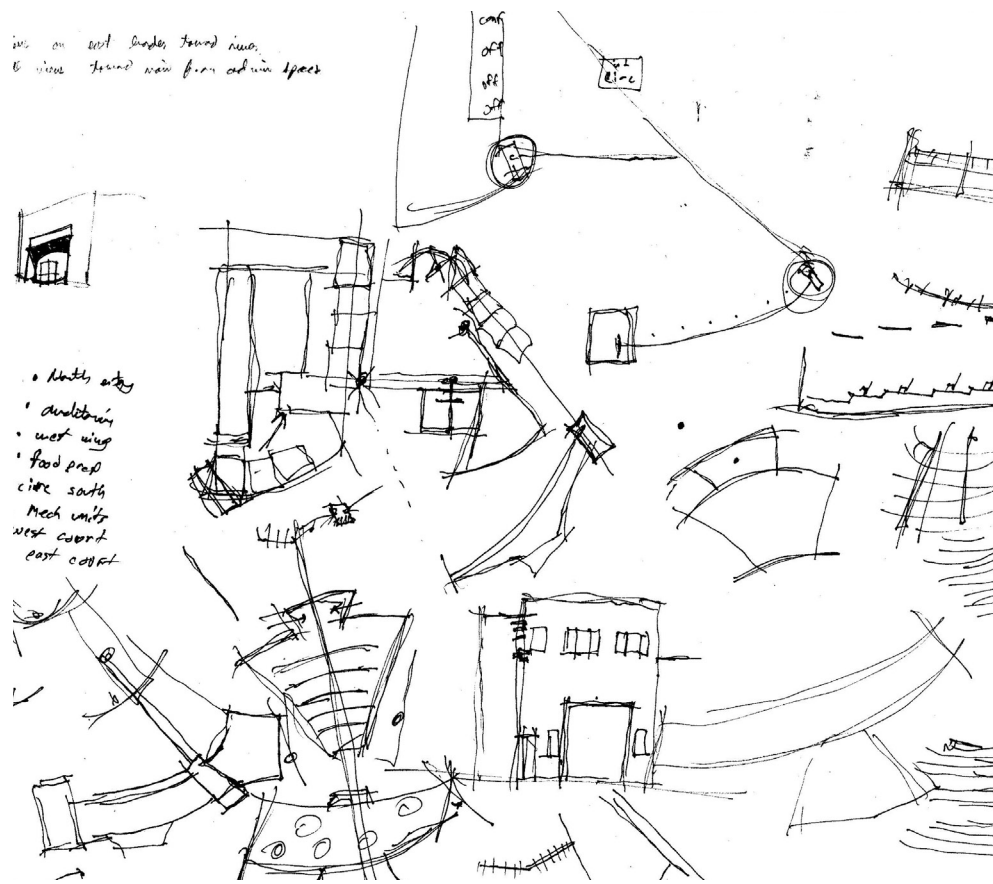 on east border toward
toward main from admin spaces
conf
off
off
off
• North entry
• auditorium
• west wing
• food prep
circ south
Mech units
west court
east court